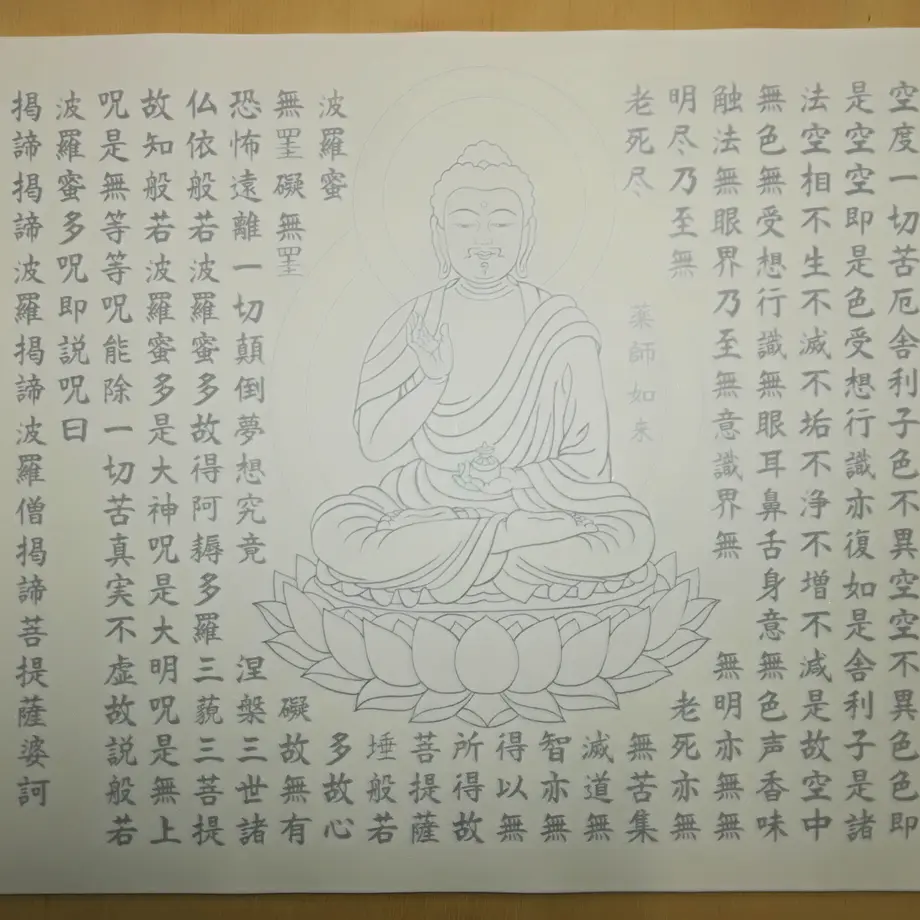 空度一切苦厄舎利子色不異空空不異色色即
是空空即是色受想行識亦復如是舎利子是諸
法空相不生不滅不垢不浄不増不減是故空中
無色無受想行識無眼耳鼻舌身意無色声香味
触法無眼界乃至無意識界無
無明亦無無
明尽乃至無
老死亦無
老死尽
薬師如来
無苦集
滅道無
智亦無
得以無
所得故
菩提薩
埵般若
波羅蜜
多故心
無罣礙無罣
礙故無有
恐怖遠離一切顛倒夢想究竟
涅槃三世諸
仏依般若波羅蜜多故得阿耨多羅三藐三菩提
故知般若波羅蜜多是大神呪是大明呪是無上
呪是無等等呪能除一切苦真実不虚故説般若
波羅蜜多呪即説呪曰
掲諦掲諦波羅掲諦波羅僧掲諦菩提薩婆訶